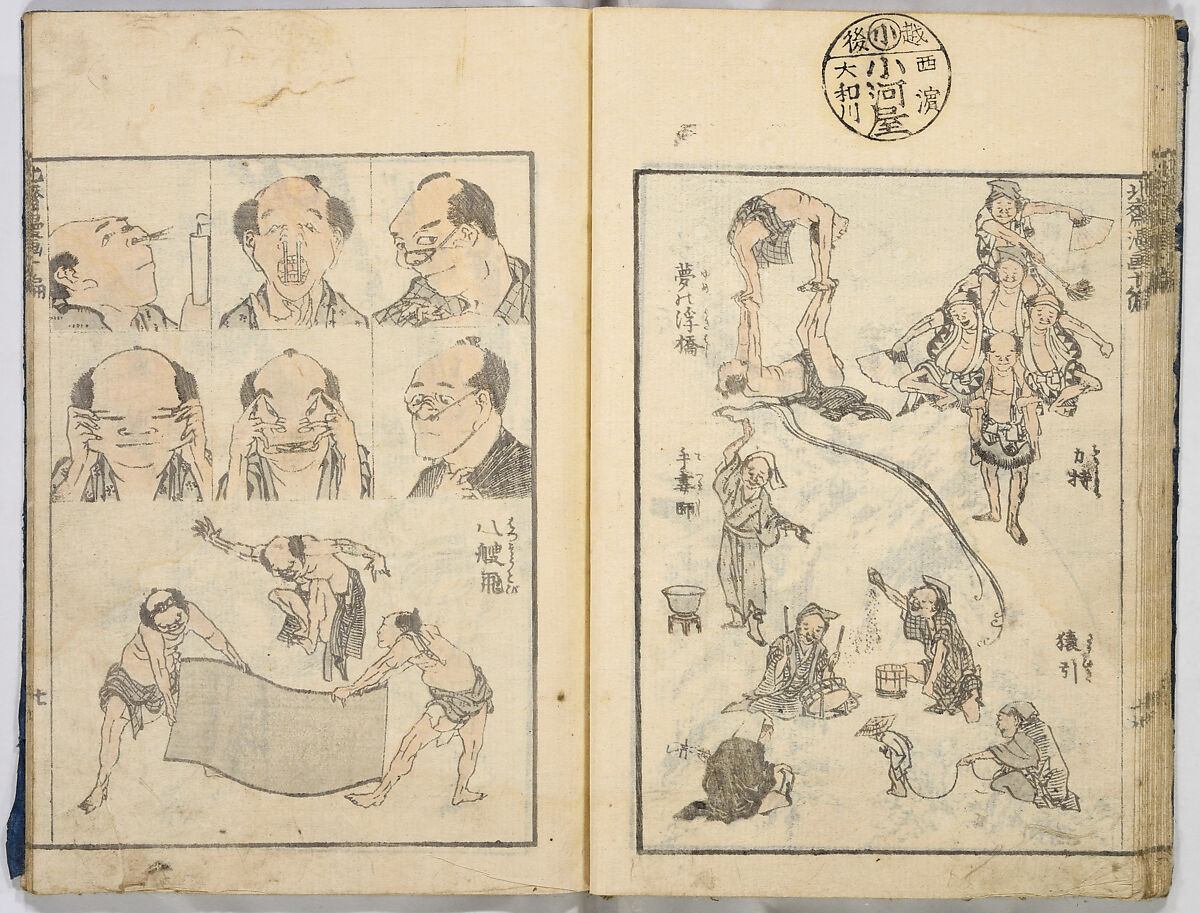 越㊉後
西濱
小河屋
大和川
北齋漫画十編
力持
夢の浮橋
ゆめ
手妻師
猿引
八艘飛
七